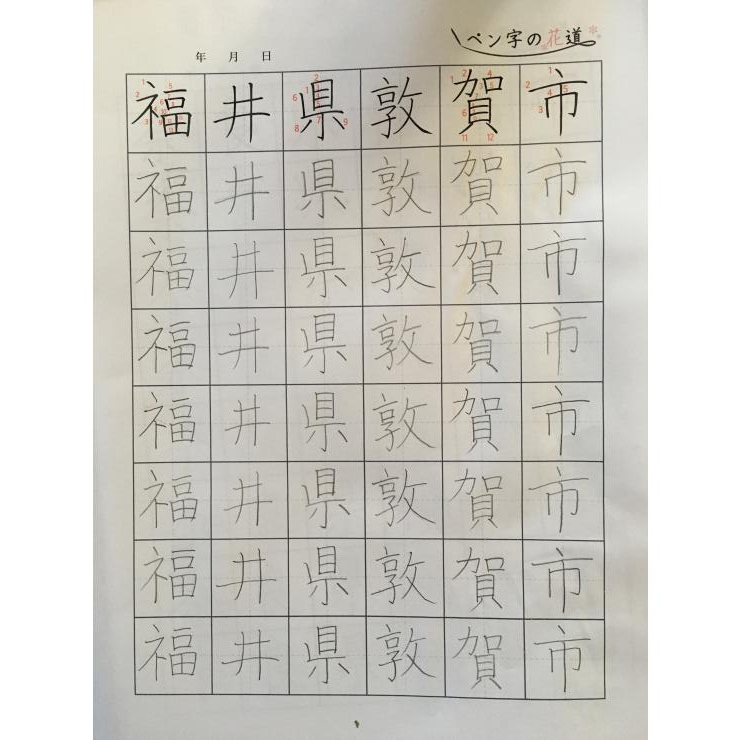 ペン字の花道
年 月 日
福井県敦賀市
福井県敦賀市
福井県敦賀市
福井県敦賀市
福井県敦賀市
福井県敦賀市
福井県敦賀市
福井県敦賀市